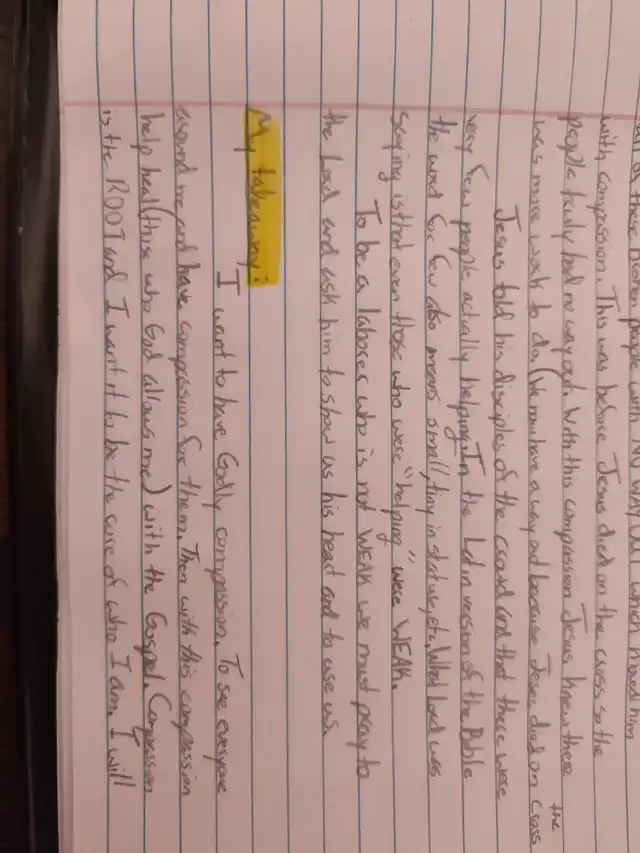 people with No way out which moved him
with compassion. This was before Jesus died on the cross so the
people truly had no way out. With this compassion Jesus knew there
was more work to do. (We now have a way out because Jesus died on the cross
Jesus told his disciples of the crowd and that there were
very few people actually helping. In the Latin version of the Bible
the word for few also means small, tiny in stature, etc. What Lord was
saying is that even those who were "helping" were WEAK.
To be a laborer who is not WEAK we must pray to
the Lord and ask him to show us his heart and to use us.
My takeaway:
I want to have Godly compassion. To see everyone
around me and have compassion for them. Then with this compassion
help heal (those who God allows me) with the Gospel. Compassion
is the ROOT and I want it to be the core of who I am. I will